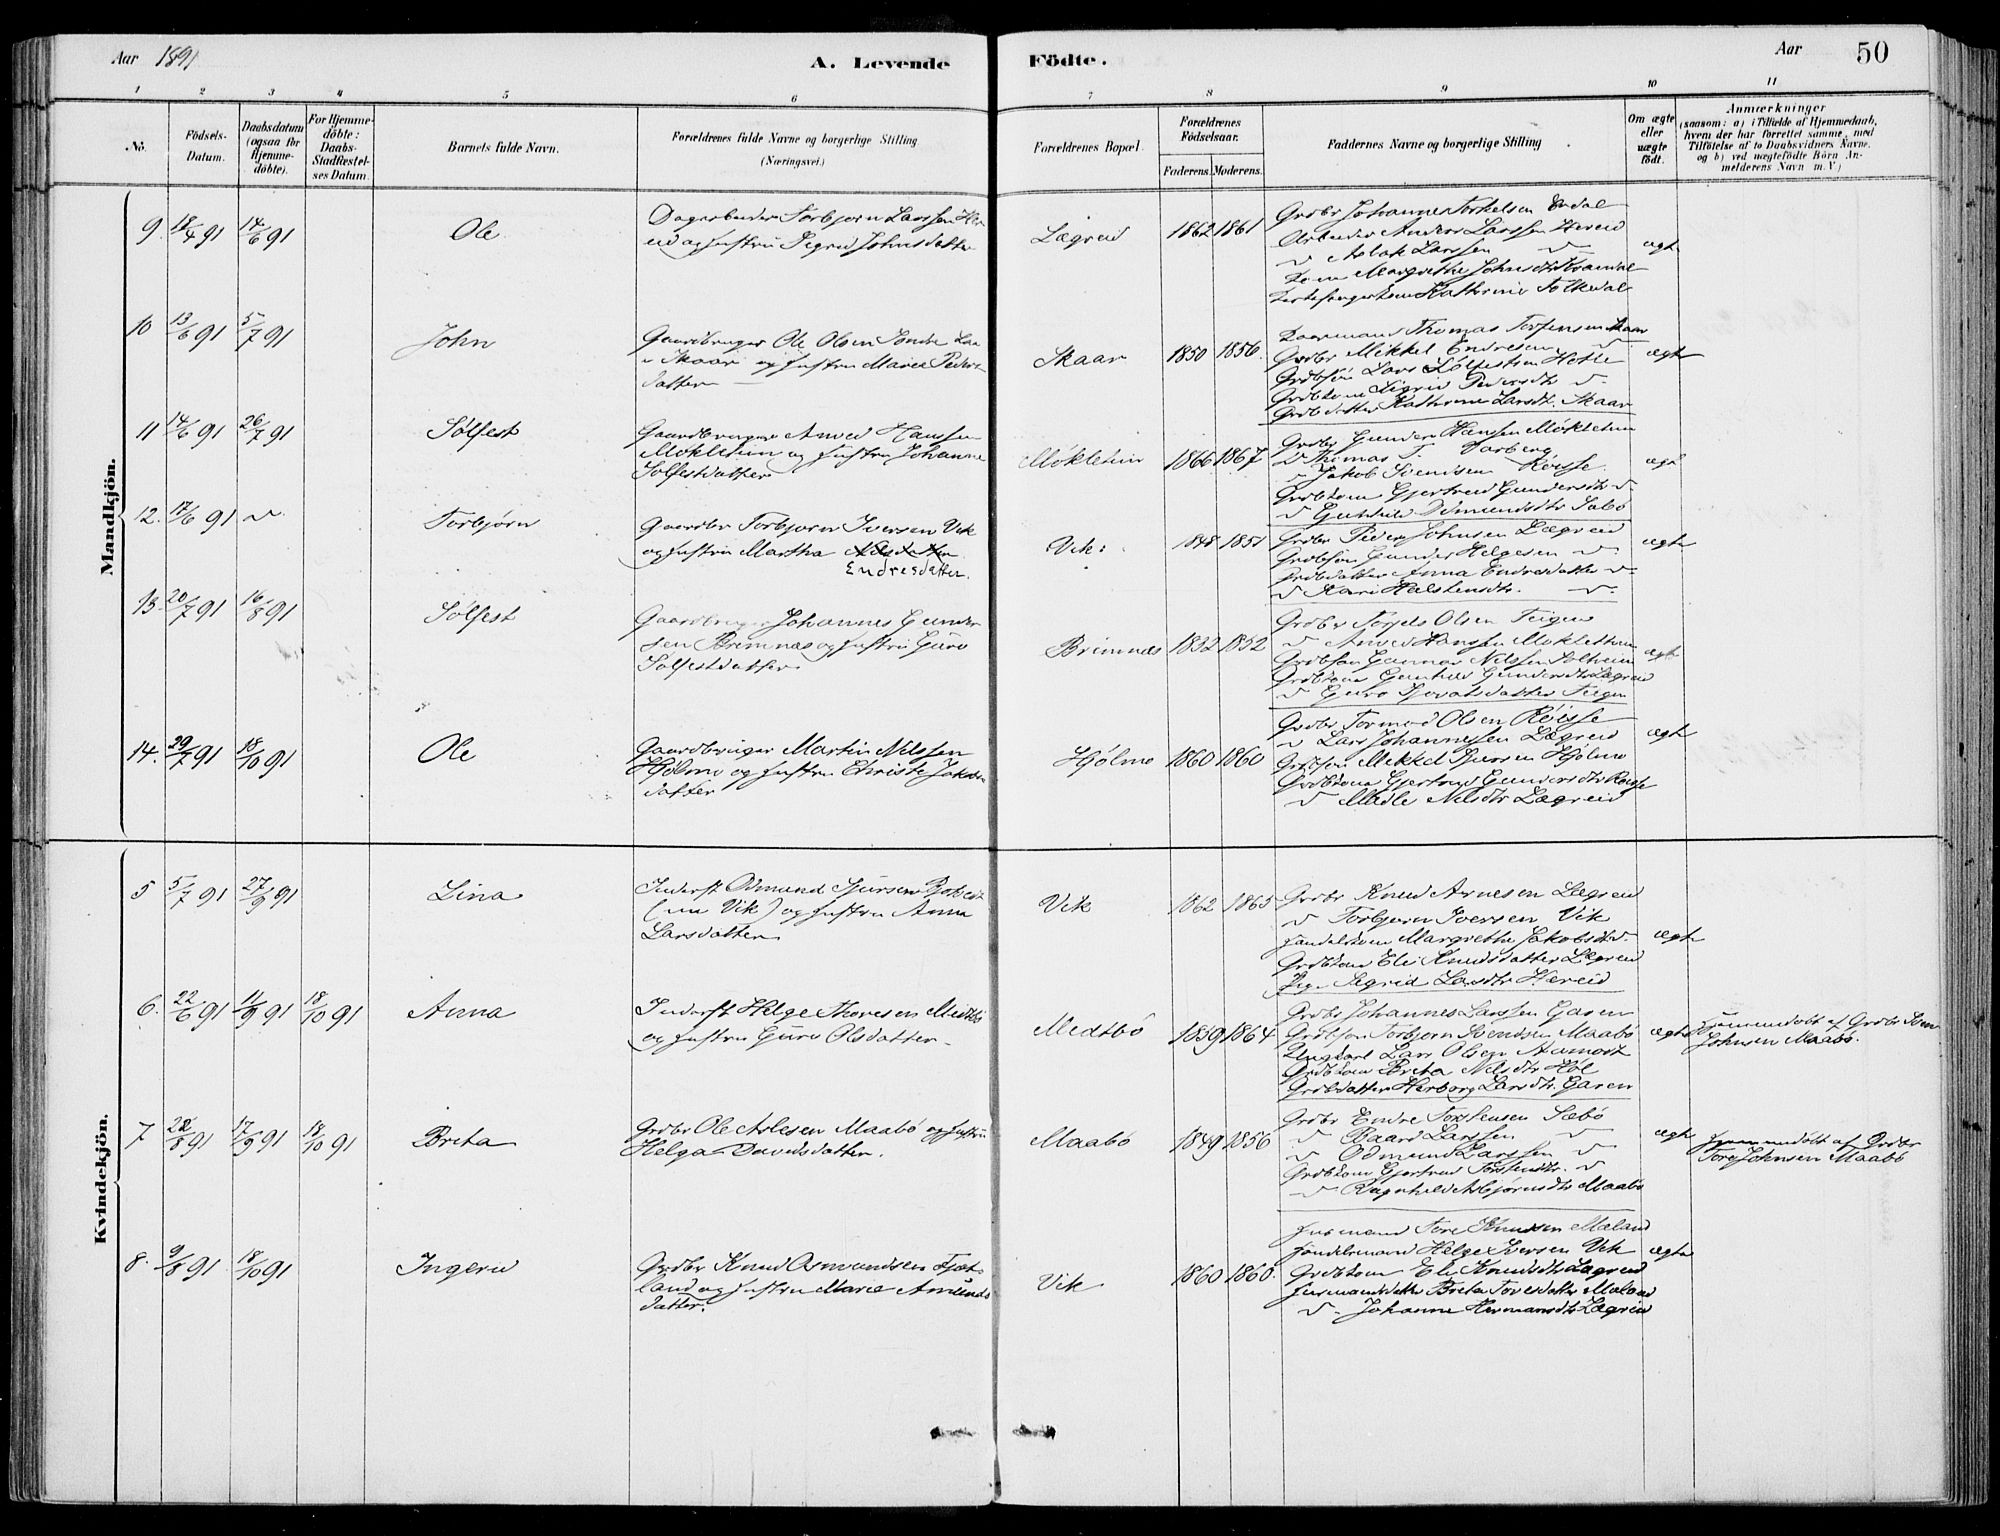 Aar 1891
A. Levende Födte.
Aar 50
1 2 3 4 5 6 7 8 9 10 11
No.
Födsels-
Datum.
Daabsdatum
(ogsaa for
Hjemme-
döbte).
For Hjemme-
döbte:
Daabs-
Stadfæstel-
ses Datum.
Barnets fulde Navn.
Forældrenes fulde Navne og borgerlige Stilling
(Næringsvei.)
Forældrenes Bopæl.
Forældrenes
Födselsaar.
Faderens. Moderens.
Faddernes Navne og borgerlige Stilling
Om ægte
eller
uægte
født.
Anmærkninger
(saasom: a) i Tilfælde af Hjemmedaab,
hvem der har forrettet samme, med
Tilföielse af to Daabsvidners Navne.
og b) ved uægtefödte Börn An-
melderens Navn m. V)
Mandkjön.
9. 18/4 91 14/6 91
Ole
Dagarbeider Torbjørn Larssen Her
eid og Hustru Sigrid Johnsdatter
Lægreid
1862 1861
Grdbr Johannes Torkelsen Endal
Arbeider Anders Larssen Hereid
v Aslak Larssen v
Kone Margrethe Johnsdtr
Kathrine Folkedal
ægte
10 13/6 91 5/7 91
John
Gaardbruger Ole Olsen
Skaar og Hustru Maria Peders
datter
Skaar
1850 1856.
Thomas Skaar
Grdbr Mikkel Endresen v
Grdbsøn Lars Sølfestsen
Grdbkone Sigrid Pedersdtr v
Grdbdatter Kathrine Larsdt. Skaar
ægte
11 14/6 91 26/7 91
Sølfest
Gaardbruger Amed Hanssen
Møkletun og Hustru Johanne
Sølfestdatter
Møkletun
1866 1867
Grdbr Gunder Hansen Møkletun
v Thomas T. Varberg
v Jakob Svendsen Røisse
Grdbkone Gjertrud Gundersdtr v
v Gunhild Odmundsdtr Sæbø
ægte
12. 17/6 91 v
Torbjørn
Gaardbr Torbjørn Iversen Vik
og Hustru Martha
Endresdatter.
Vik:
1848 1851
Grdbr Peder Johnsen Lægreid
Grdbsøn Gunder Helgesen v
Grdbdatter Anna Endresdatter v
v Kari Halstensdtr. v
ægte
13. 20/7 91 16/8 91
Sølfest
Gaardbruger Johannes Gunder
sen Brimnæs og Hustru Guro
Sølfestdatter
Brimnæs
1832 1852
Grdbr Torgels Olsen Teigen
v Amed Hanssen Møkletun
Grdbsøn Gunnar Nilssen Solheim
Grdbkone Gunhild Gundersdtr Lægreid
v Guro datter Teigen
ægte
14. 29/7 91 18/10 91
Ole
Gaardbruger Martin Nilssen
Hjølmo og Hustru Christi Jakobs
datter
Hjølmo
1860 1860
Grdbr Tormod Olsen Røisse
v Lars Johannessen Lægreid
Grdbsøn Mikkel Sjursen Hjølmo
Grdbkone Gjertrud Gundersdtr Røisse
v Madle Nilsdtr Lægreid
ægte
Kvindekjön.
5 5/7 91 27/9 91
Lina
Inderst Odmund Sjursen
(nu Vik) og Hustru Anna
Larsdatter
Vik
1862 1865
Grdbr Knud Arnesen Lægreid
v Torbjørn Iversen Vik
Handelskone Margrethe Jakobsdtr v
Grdbkone Eli Knudsdatter Lægreid
Pige Sigrid Larsdtr Hereid
ægte
6. 22/6 91 11/9 91 18/10 91
Anna
Inderst Helge Thoresen Medtbø
og Hustru Guro Olsdatter
Medtbø
1859 1864
Grdbr Johannes Larssen Garen
Grdbsøn Torbjørn Svendsen Maabø
Ungkarl Lars Olsen Aamodt
Grdbkone Brita Nilsdtr Høl
Grdbdatter Herborg Larsdtr. Garen
ægte
Hjemmedøbt af Grdbr Sven
Johnsen Maabø.
7 22/8 91 17/9 91 18/10 91
Brita
Grdbr Ole Aslesen Maabø og Hustru
Helga Davidsdatter.
Maabø
1849 1856
Grdbr Endre Torstensen Sæbø
v Baard Larssen v
v Odmund Larssen v
Grdbkone Gjertrud Torstensdtr. v
v Ragnhild Asbjørnsdtr Maabø
ægte
Hjemmedøbt af Grdbr
Tore Johnsen Maabø
8. 9/8 91 18/10 91
Ingerid
Grdbr Knud Osmundsen Tjæt
land og Hustru Marie Amunds
datter.
Vik
1860 1860.
Husmand Tore Knudsen Maland
Handelsmand Helge Iversen Vik
Grdbkone Eli Knudsdtr Lægreid
Husmandsdatter Brita Toresdatter Maland
v Johanne Hermansdtr Lægreid
ægte